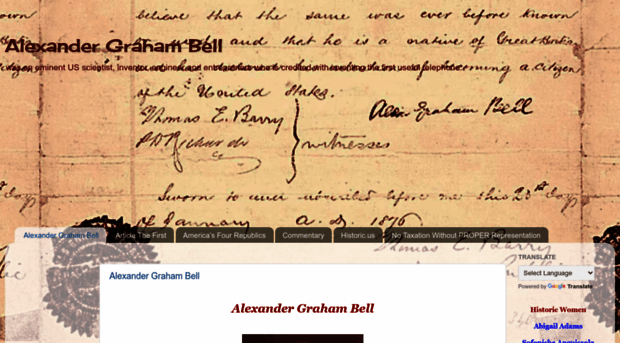 believe that the same was ever before known
Alexander Graham Bell
and that he is a native of Great
was an eminent US scientist, inventor, engineer and entrepreneur who is credited with inventing the first useful telephone.
becoming a citizen
of the United States.
Thomas E. Barry
Alex. Graham Bell
P. D. Richards
witnesses
Sworn to and subscribed before me this 20th
day
of January A. D. 1876
Thomas E. Barry
Alexander Graham Bell
Article The First
America's Four Republics
Commentary
Historic.us
No Taxation Without PROPER Representation
Notary Public
TRANSLATE
Select Language
Powered by Google Translate
Alexander Graham Bell
Alexander Graham Bell
Historic Women
Abigail Adams
Sofonisba Anguissola